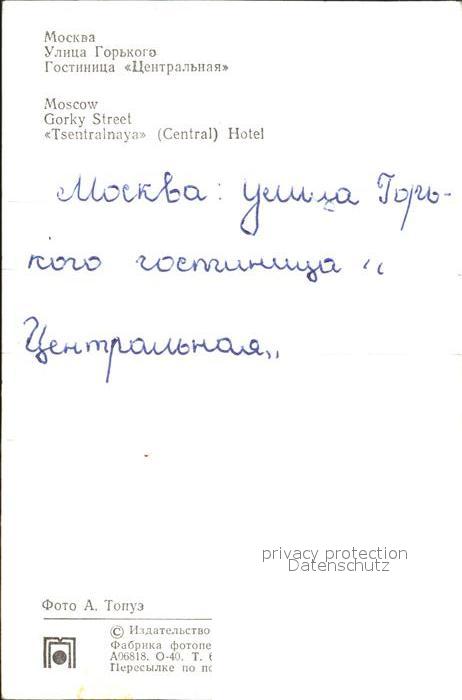 Москва
Улица Горького
Гостиница «Центральная»
Moscow
Gorky Street
«Tsentralnaya» (Central) Hotel
Москва: улица Горь-
кого гостиница „
Центральная„
privacy protection
Datenschutz
Фото А. Топуз
© Издательство
Фабрика фотопе
А06818. О-40. Т. 6
Пересылке по по